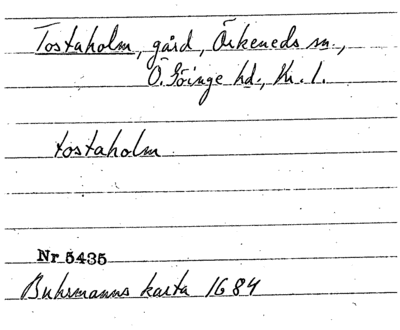 Tostaholm, gård, Örkeneds sn.,
Ö. Göinge hd., Kr. l.
tostaholm
Nr 5435
Buhrmanns karta 1684